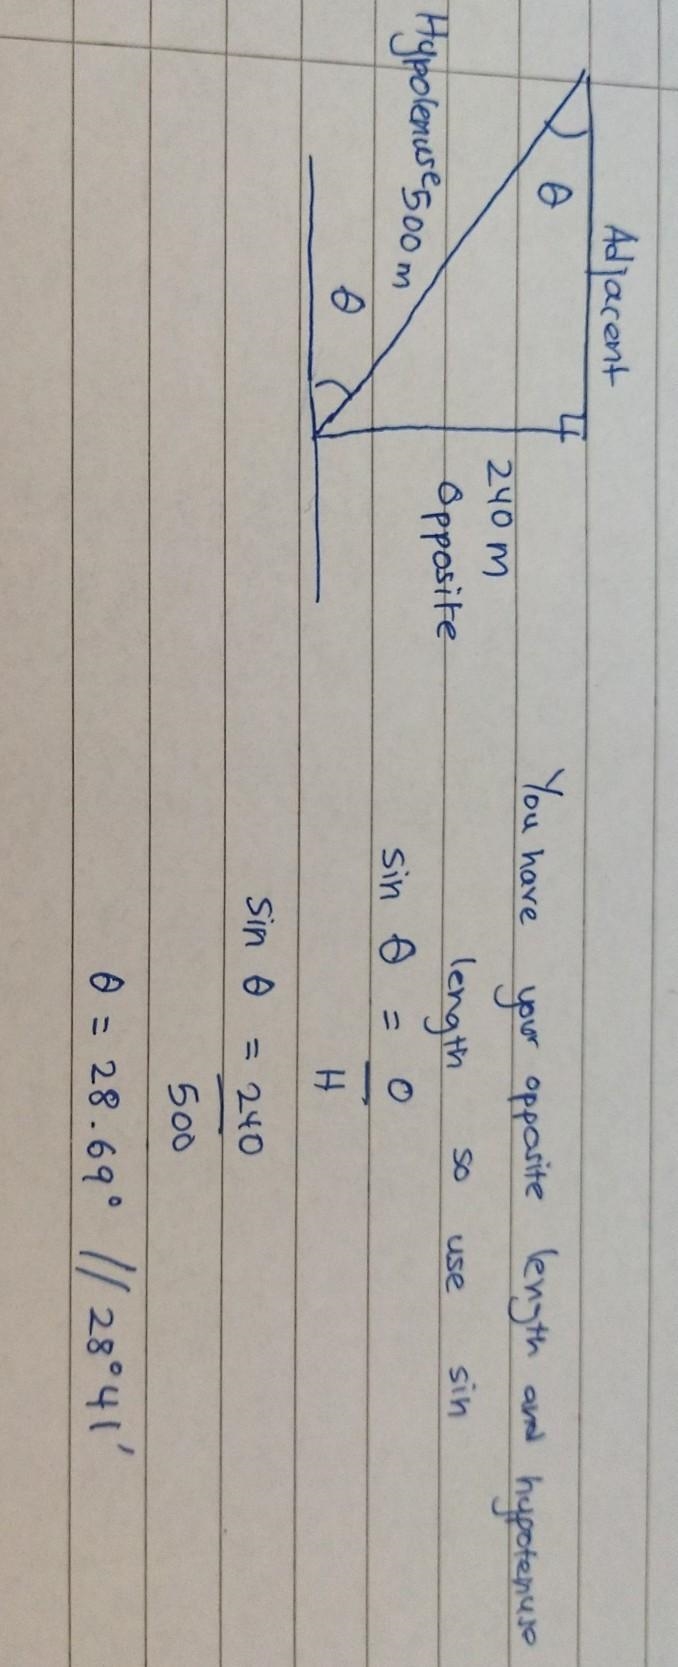 Adjacent
θ
Hypotenuse 500 m
θ
240 m
Opposite
You have your opposite length and hypotenuse
length so use sin
sin θ = O
H
sin θ = 240
500
θ = 28.69° // 28°41'